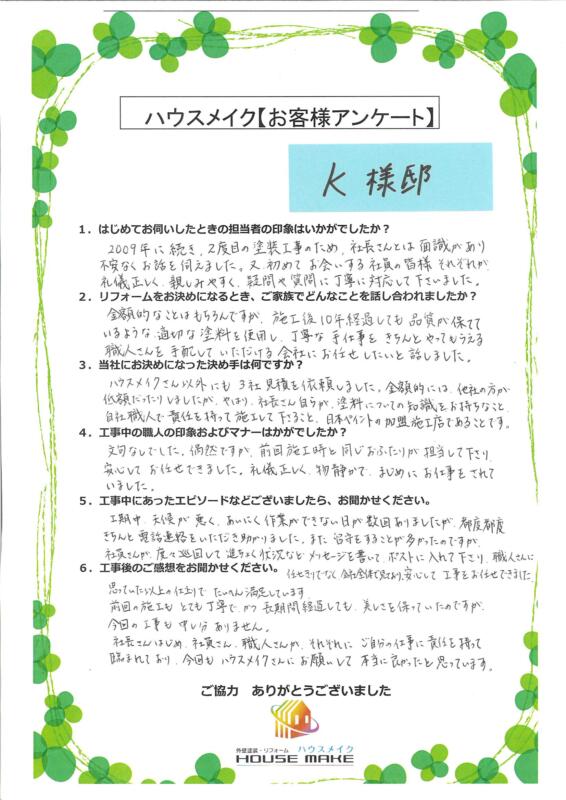 ハウスメイク【お客様アンケート】
K 様邸
1．はじめてお伺いしたときの担当者の印象はいかがでしたか？
2009年に続き、2度目の塗装工事のため、社長さんとは面識があり
不安なくお話を伺えました。又、初めてお会いする社員の皆様それぞれが
礼儀正しく、親しみやすく、疑問や質問に丁寧に対応して下さいました。
2．リフォームをお決めになるとき、ご家族でどんなことを話し合われましたか？
金額的なことはもちろんですが、施工後10年経過しても品質が保てて
いるような適切な塗料を使用し、丁寧な手仕事をきちんとやってもらえる
職人さんを手配していただける会社にお任せしたいと話しました。
3．当社にお決めになった決め手は何ですか？
ハウスメイクさん以外にも3社見積を依頼しました。金額的には、他社の方が
低額だったりしましたが、やはり、社長さん自らが、塗料についての知識をお持ちなこと、
自社職人で責任を持って施工して下さること、日本ペイントの加盟施工店であることです。
4．工事中の職人の印象およびマナーはかがでしたか？
文句なしでした。偶然ですが、前回施工時と同じおふたりが担当して下さり、
安心してお任せできました。礼儀正しく、物静かで、まじめにお仕事をされて
いました。
5．工事中にあったエピソードなどございましたら、お聞かせください。
工期中、天候が悪く、あいにく作業ができない日が数回ありましたが、都度都度
きちんと電話連絡をいただき助かりました。また留守をすることが多かったのですが、
社員さんが、度々巡回して進ちょく状況などメッセージを書いて、ポストに入れて下さり、職人さんに
任せきりでなく、会社全体で見ており、安心して工事をお任せできました
6．工事後のご感想をお聞かせください。
思っていた以上の仕上りで、たいへん満足しています。
前回の施工もとても丁寧で、かつ長期間経過しても、美しさを保っていたのですが、
今回の工事も申し分ありません。
社長さんはじめ、社員さん、職人さんが、それぞれにご自分の仕事に責任を持って
臨まれており、今回もハウスメイクさんにお願いして本当に良かったと思っています。
ご協力　ありがとうございました
外壁塗装・リフォーム ハウスメイク
HOUSE MAKE